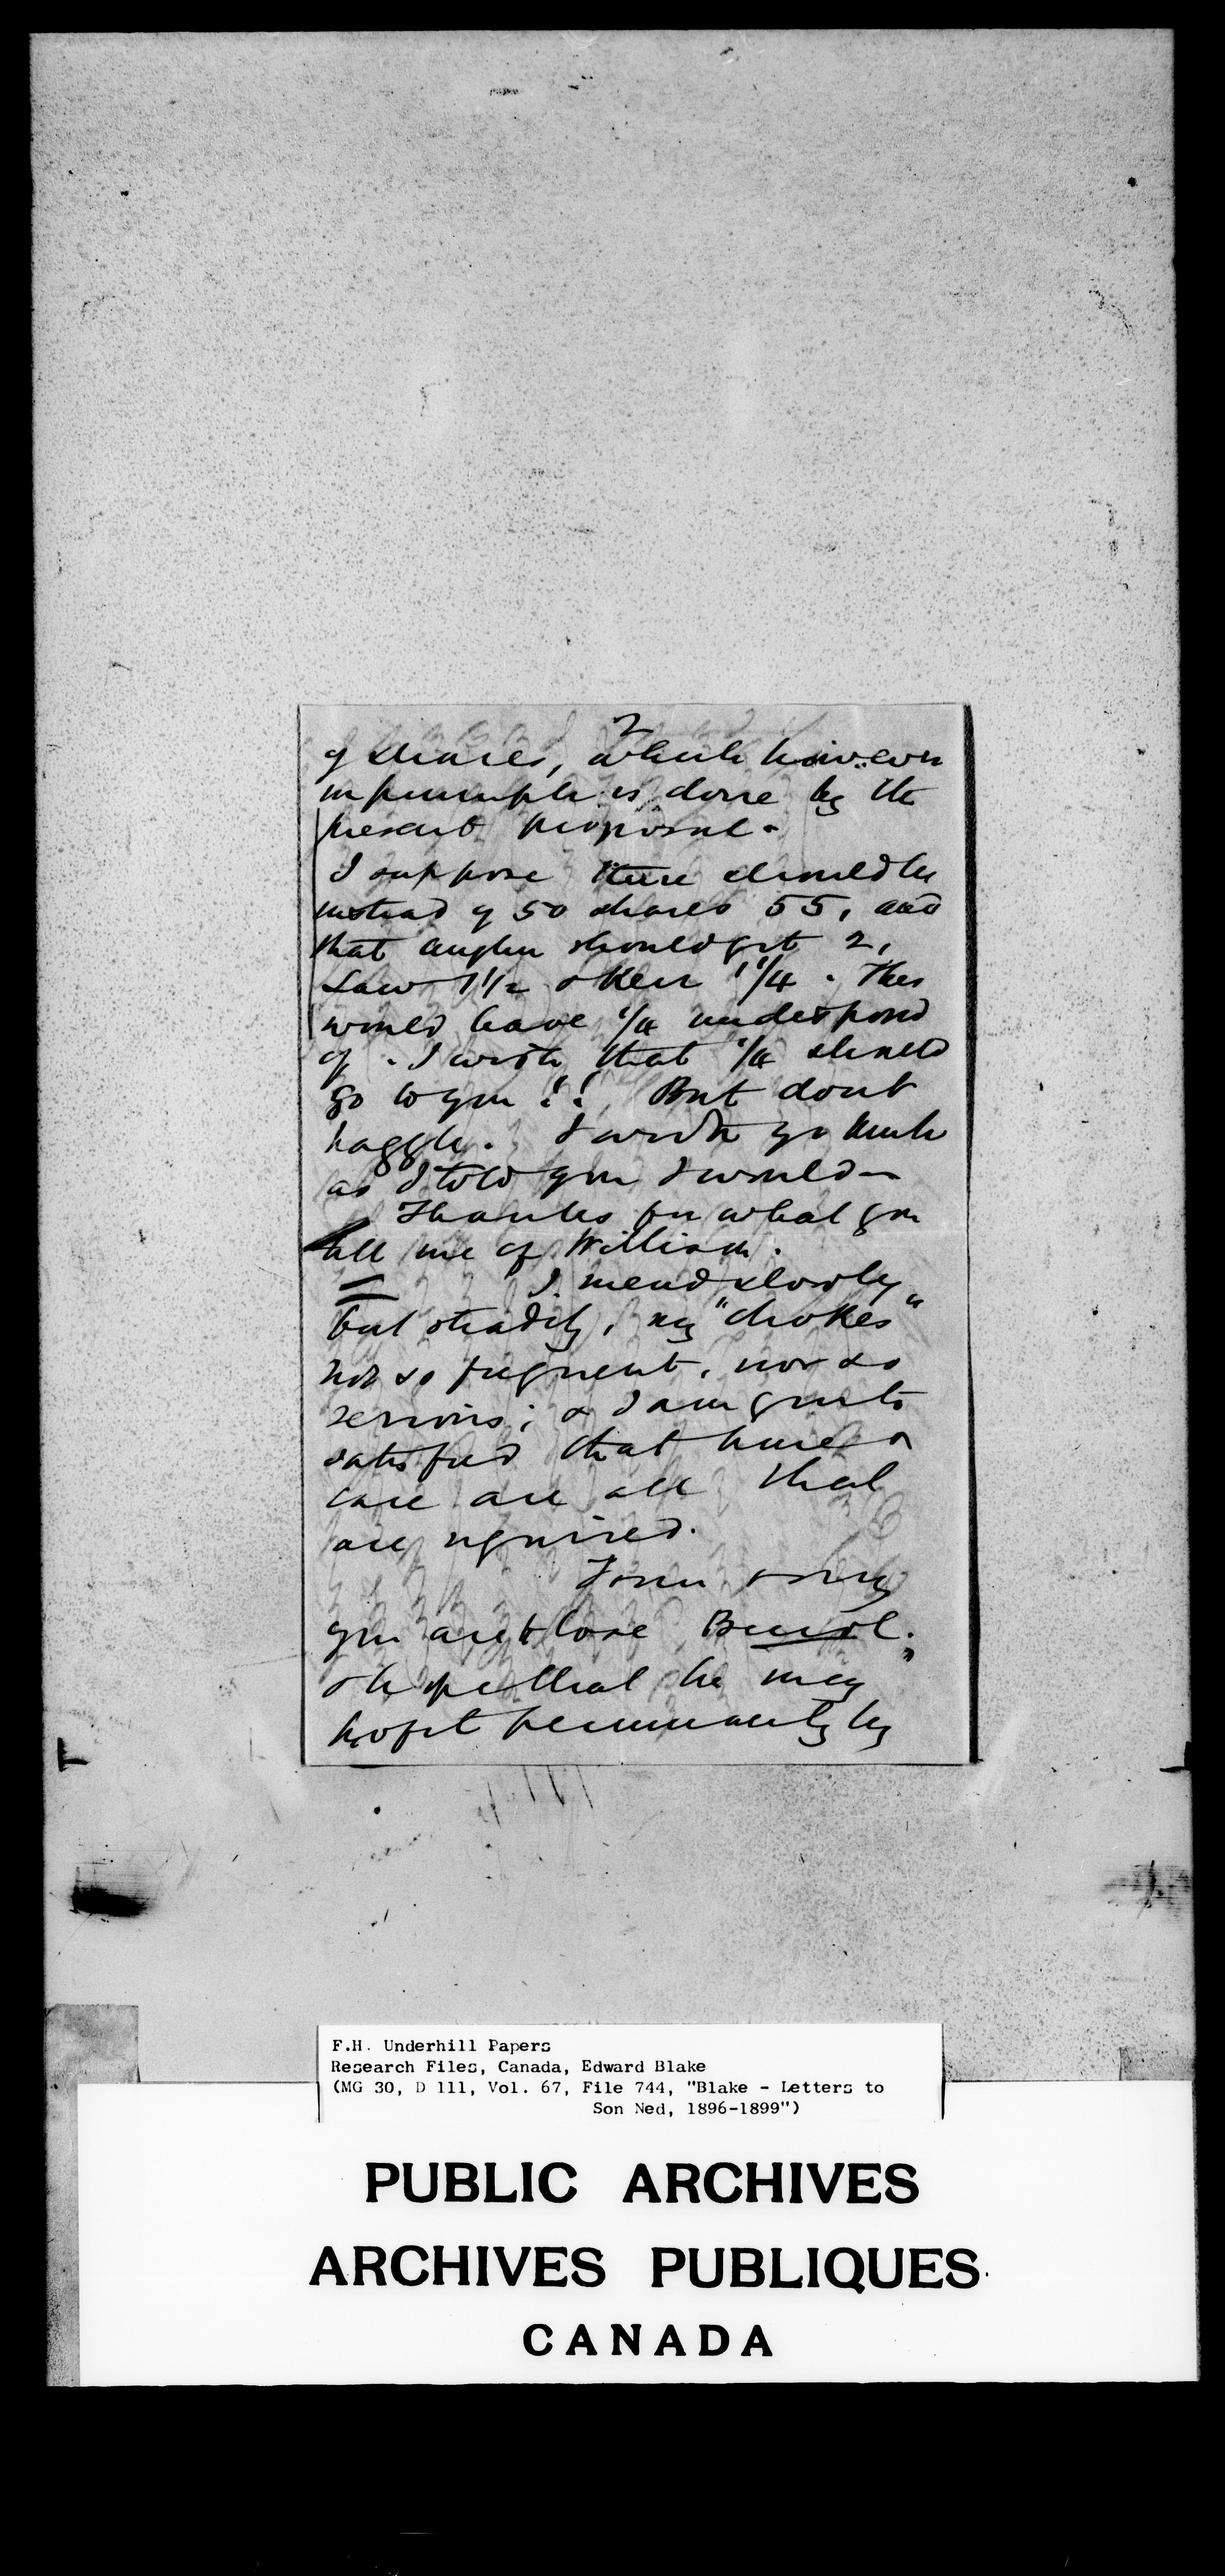 2
of shares, which however
in principle is done by the
present proposal.
I suppose there should be
instead of 50 shares 55, and
that should get 2,
Law 1 1/2 & Kerr 1 1/4. This
would leave 1/4 undisposed
of. I wish that 1/4 should
go to you!! But dont
haggle.
as I told you I would
Thanks for what you
tell me of Willison.
I mend slowly
but steadily, my "chokes"
not so frequent, nor so
serious; & I am quite
satisfied that time &
care are all that
are required.
sorry
you are to lose
& hope that he may
profit permanently by
T
F.H. Underhill Papers
Research Files, Canada, Edward Blake
(MG 30, D 111, Vol. 67, File 744, "Blake - Letters to
Son Ned, 1896-1899")
PUBLIC ARCHIVES
ARCHIVES PUBLIQUES
CANADA